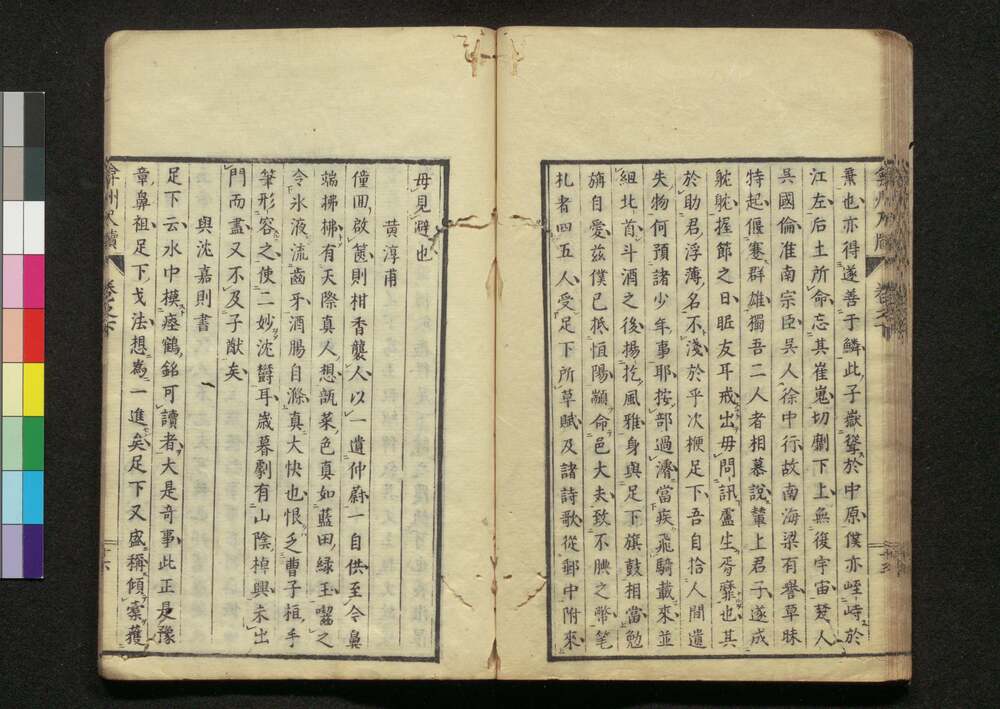 業也亦得遂善于鱗此子嶽聳於中原僕亦峙於
江左后土所命忘其崔嵬切劘下上無復宇宙楚人
吳國倫淮南宗臣吳人徐中行故南海梁有譽草昧
特起偃蹇群雄獨吾二人者相慕說輦上君子遂成
鮀鮀握節之日昵友耳戒出毋問訊盧生胥靡也其
於助君浮薄名不淺於乎次楩足下吾自拾人間遺
失物何預諸少年事耶按部過濟當疾飛騎載來並
組北首斗酒之後揚扢風雅身與足下旗鼓相當勉
旃自愛茲僕已抵恒陽顓命邑大夫致不腆之幣筆
札者四五人受足下所草賦及諸詩歌從郵中附來
毋見避也
黃淳甫
僮回啟篋則柑香襲人以一遺仲蔚一自供至令鼻
端拂拂有天際真人想甑菜色真如藍田綠玉囓之
令氷液流齒牙酒腸自滌真大快也恨乏曹子桓手
筆形容之使二妙沈欝耳歳暮劇有山陰棹興未出
門而盡又不及子猷矣
與沈嘉則書
足下云水中摸瘞鶴銘可讀者大是奇事此正是豫
章鼻祖足下戈法想為一進矣足下又盛稱傾囊獲
弇州尺牘
卷之下
十六